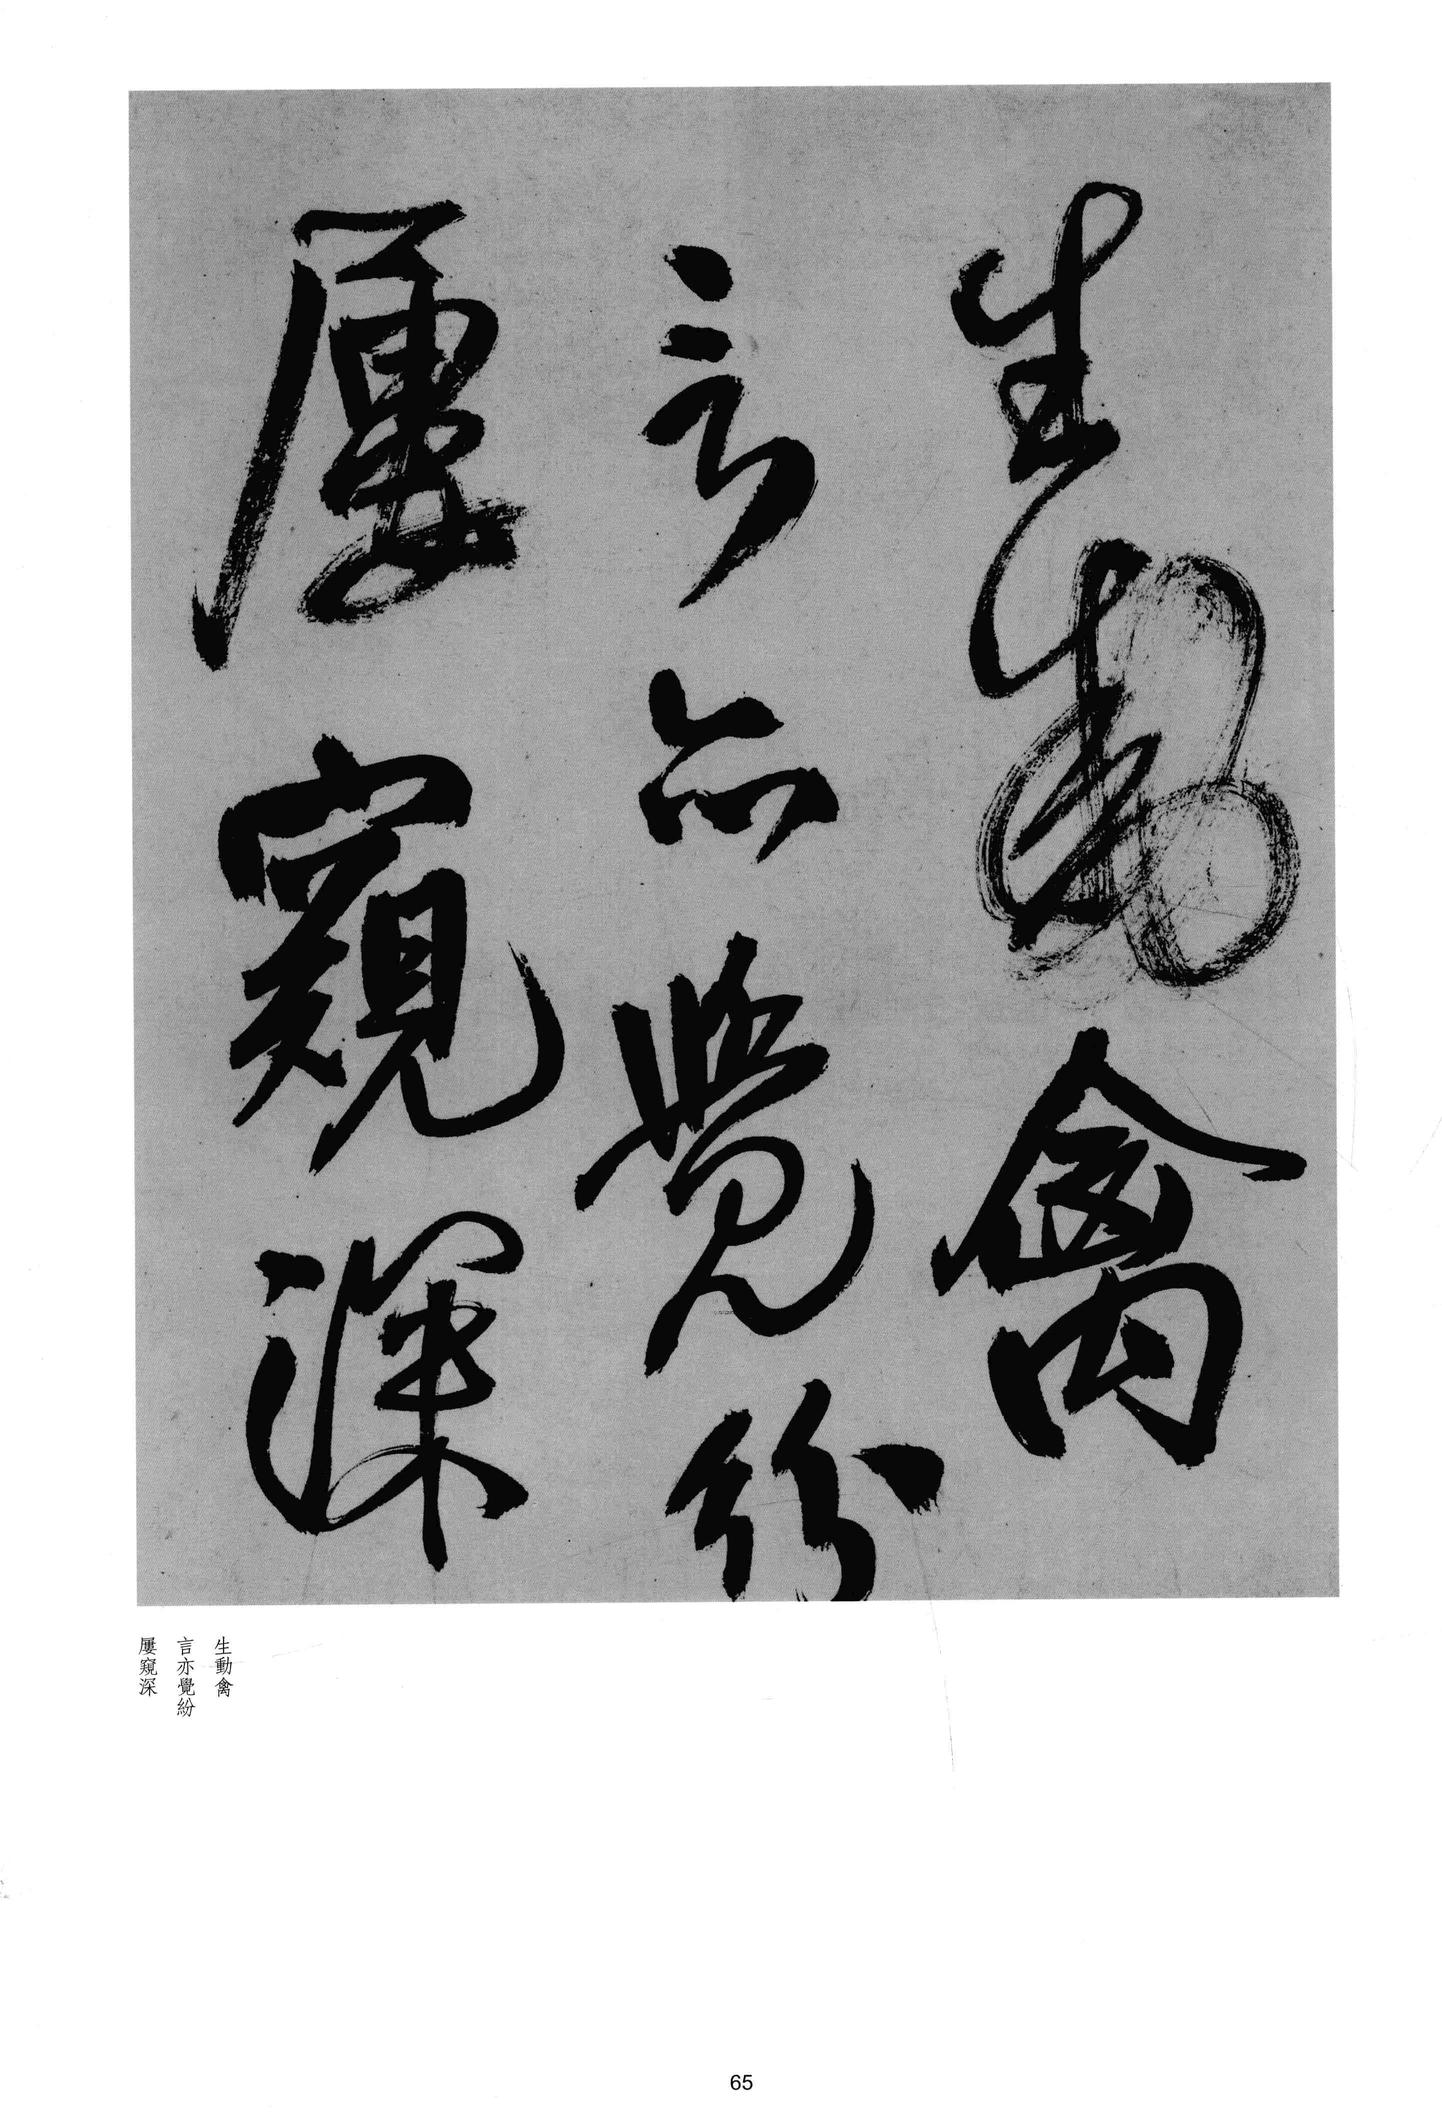 生動禽
言亦覺紛
屢窺深
生動禽
言亦覺紛
屢窺深
65